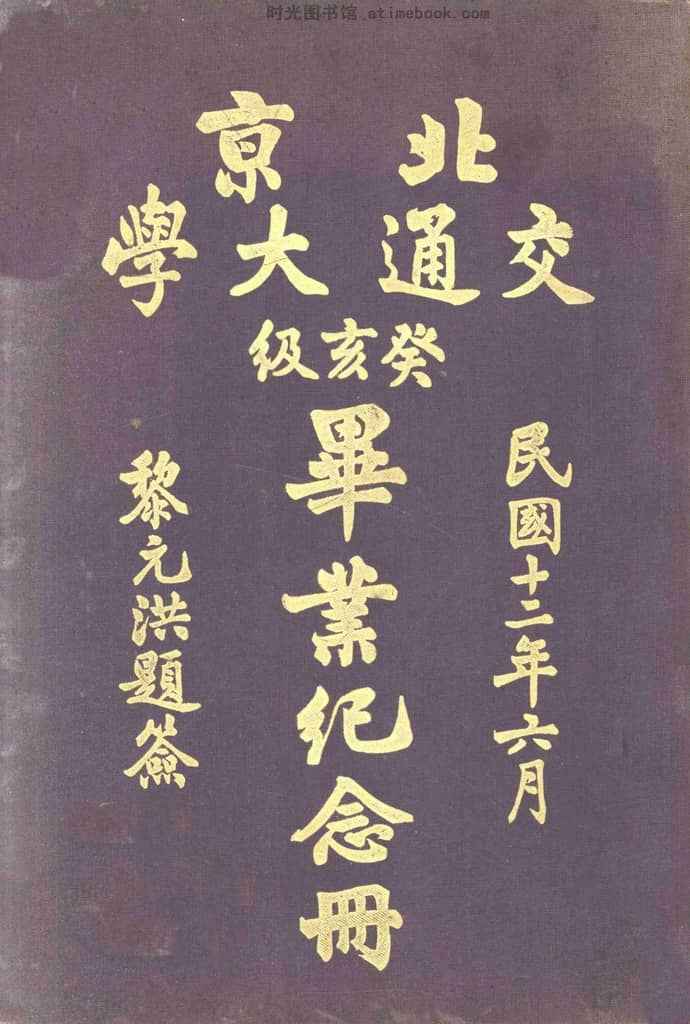 时光图书馆 atimebook.com
北京
交通大學
癸亥級
民國十二年六月
畢業紀念冊
黎元洪題簽